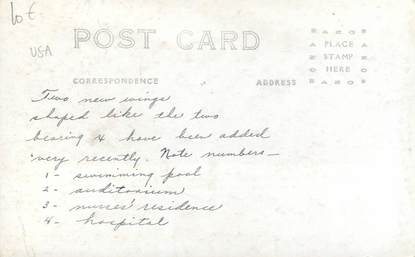 10 €
USA
POST CARD
AZO
PLACE
STAMP
HERE
AZO
CORRESPONDENCE
ADDRESS
Two new wings
shaped like the two
bearing 4 have been added
very recently. Note numbers—
1- swimming pool
2- auditorium
3- nurses' residence
4- hospital